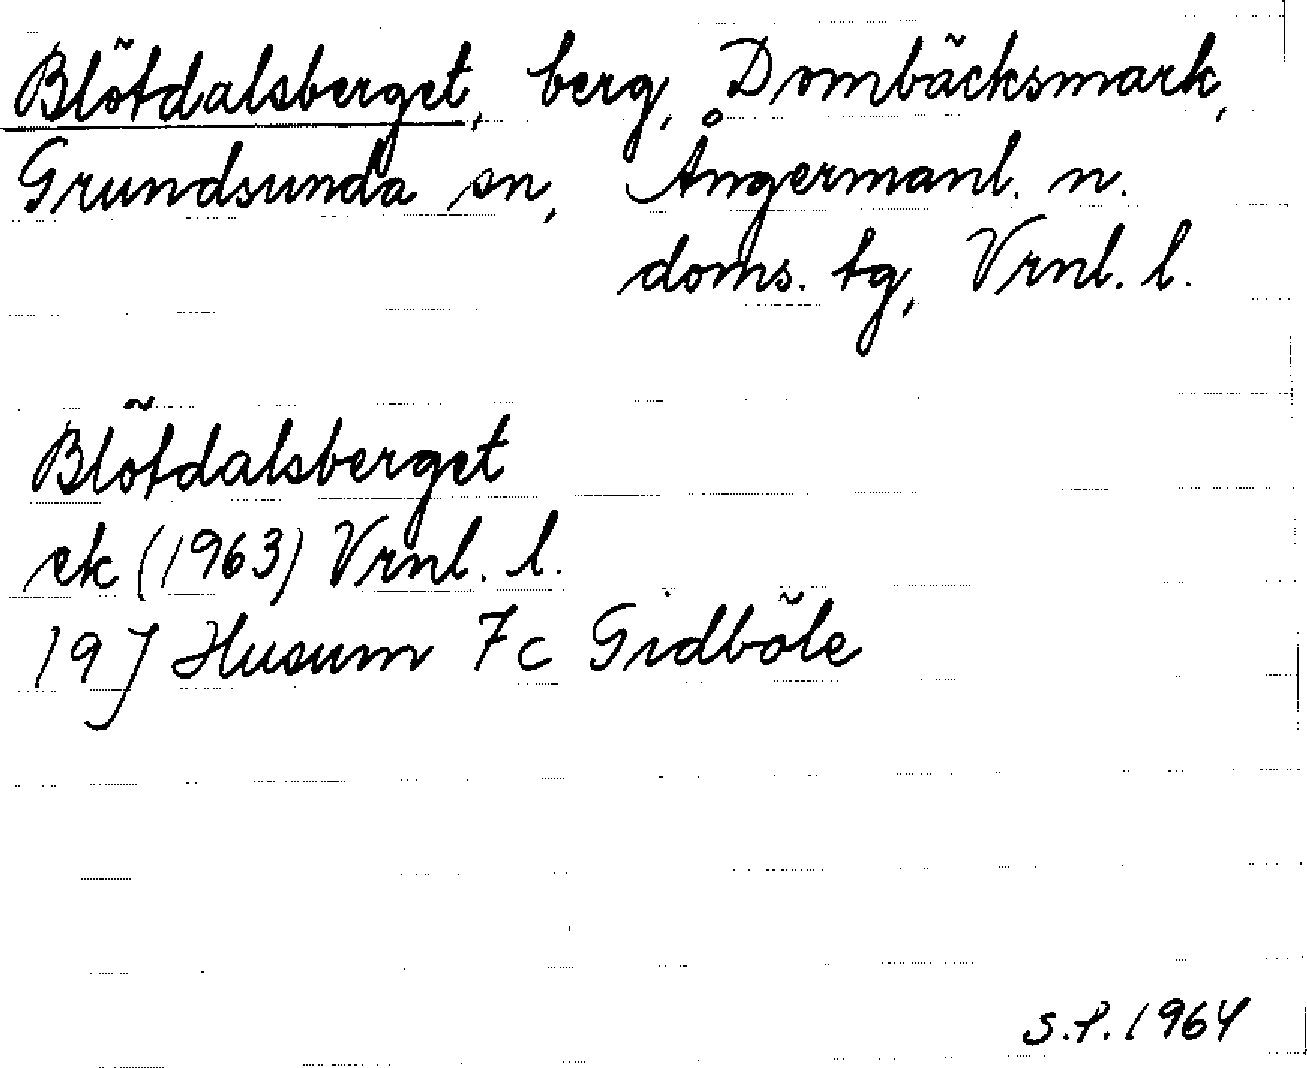 Blötdalsberget, berg, Dombäcksmark,
Grundsunda sn, Ångermanl. n.
doms. tg, Vrnl. l.
Blötdalsberget
ek (1963) Vrnl. l.
19J Husum 7c Gidböle
S.P. 1964